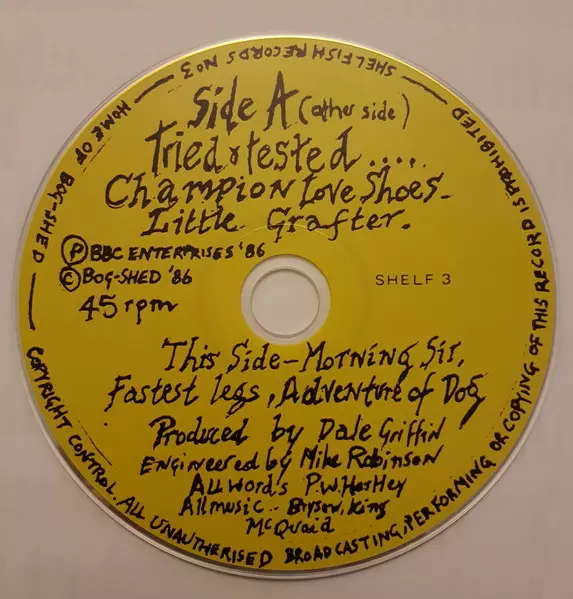 SHELFISH RECORDS No3
HOME OF BOG-SHED
Side A (other side)
Tried & tested.....
Champion Love Shoes-
Little Grafter.
Ⓟ BBC ENTERPRISES '86
© BOG-SHED '86
45 rpm
SHELF 3
This Side-Morning Sir,
Fastest legs, Adventure of Dog
Produced by Dale Griffin
Engineered by Mike Robinson
All Words P.W. Hartley
All music.. Bryson, King
McQuaid
COPYRIGHT CONTROL. ALL UNAUTHERISED BROADCASTING, PERFORMING OR COPYING OF THIS RECORD IS PROHIBITED